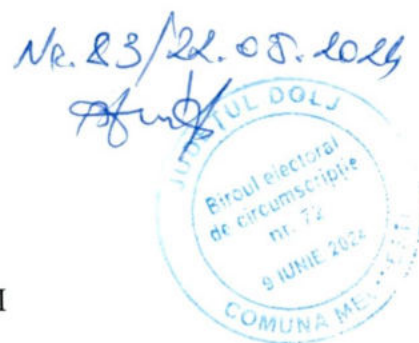 Nr. 83/22.05.2024
JUDEȚUL DOLJ
Biroul electoral
de circumscripție
nr. 72
9 IUNIE 2024
COMUNA